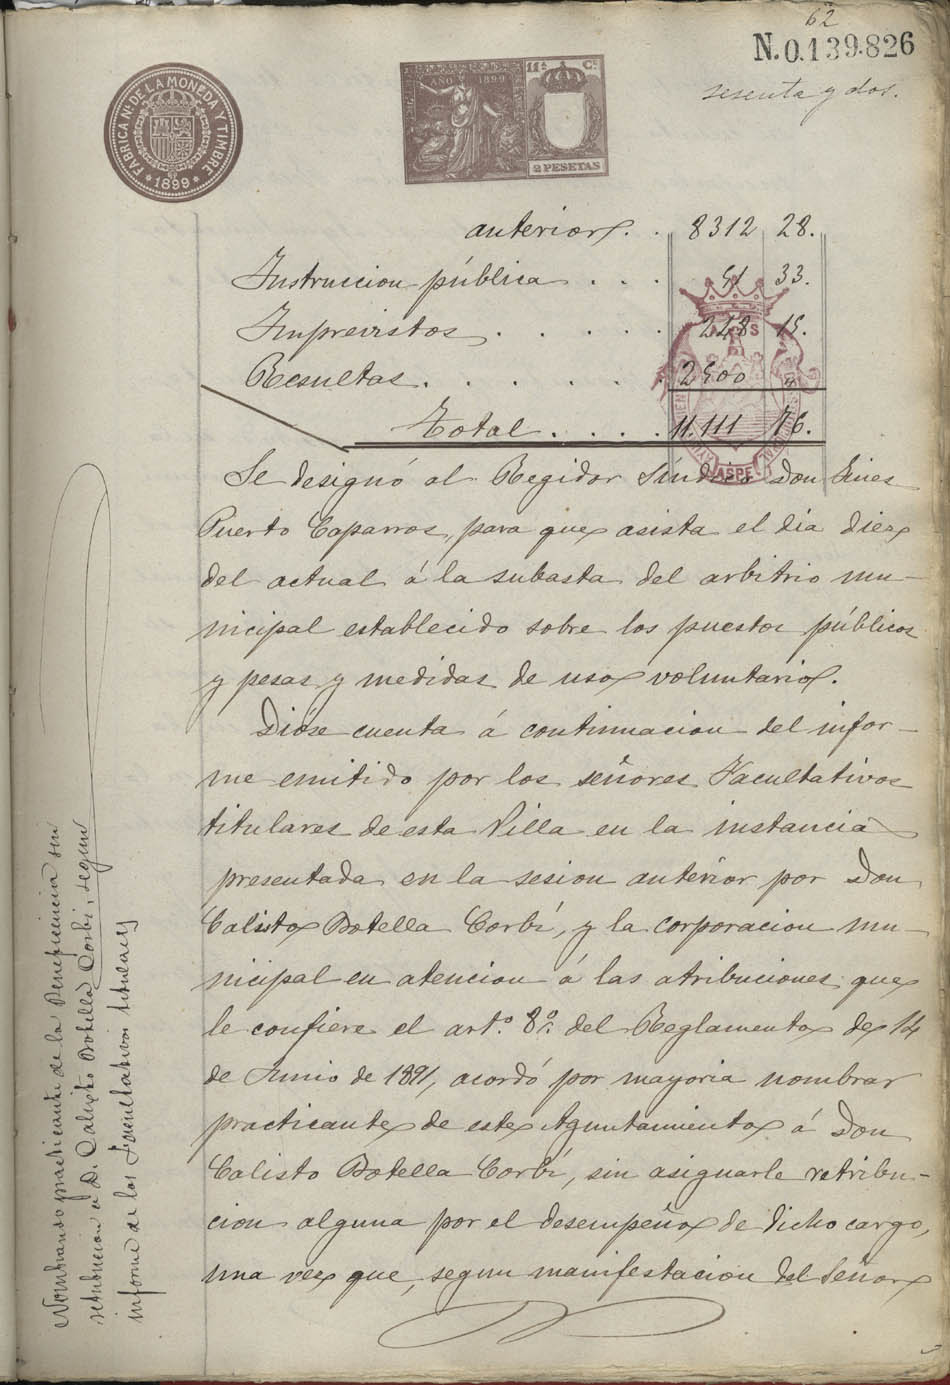 62
N.0.139.826
sesenta y dos.
FABRICA Nal. DE LA MONEDA Y TIMBRE
* 1899 *
AÑO 1899
11ª C.
2 PESETAS
anterior. . 8312 28.
Instruccion pública . . . 51 33.
Imprevistos . . . . . 248 15.
Resultas . . . . . . 2500 "
Total . . . . 11.111 76.
ASPE
Se designó al Regidor Síndico Don Gines
Puerto Caparros, para que asista el dia diez
del actual á la subasta del arbitrio mu-
nicipal establecido sobre los puestos públicos
y pesas y medidas de uso voluntario.
Dióse cuenta á continuacion del infor-
me emitido por los señores Facultativos
titulares de esta Villa en la instancia
presentada en la sesion anterior por Don
Calisto Botella Corbí, y la corporacion mu-
nicipal en atencion á las atribuciones que
le confiere el artº. 8º. del Reglamento de 14
de Junio de 1891, acordó por mayoria nombrar
practicante de este Ayuntamiento á Don
Calisto Botella Corbí, sin asignarle retribu-
cion alguna por el desempeño de dicho cargo,
una vez que, segun manifestacion del Señor
Nombrando practicante de la Beneficencia sin
retribucion á D. Calixto Botella Corbi, segun
informe de los Facultativos titulares